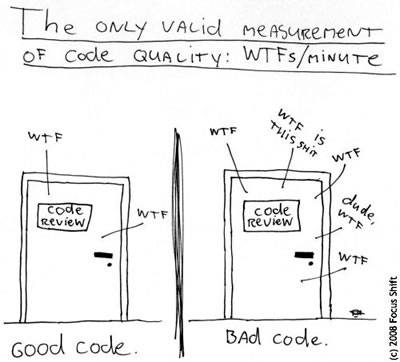 The only valid measurement
of code quality: WTFs/minute
WTF
code
review
WTF
Good code.
WTF
WTF is
this shit
WTF
code
review
dude,
WTF
WTF
Bad code.
(c) 2008 Focus Shift